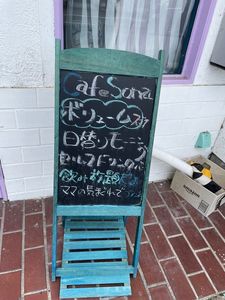 Cafe Sona
ボリューム
日替りモーニング
セルフドリンクバー
飲み放題
ママの気まぐれで